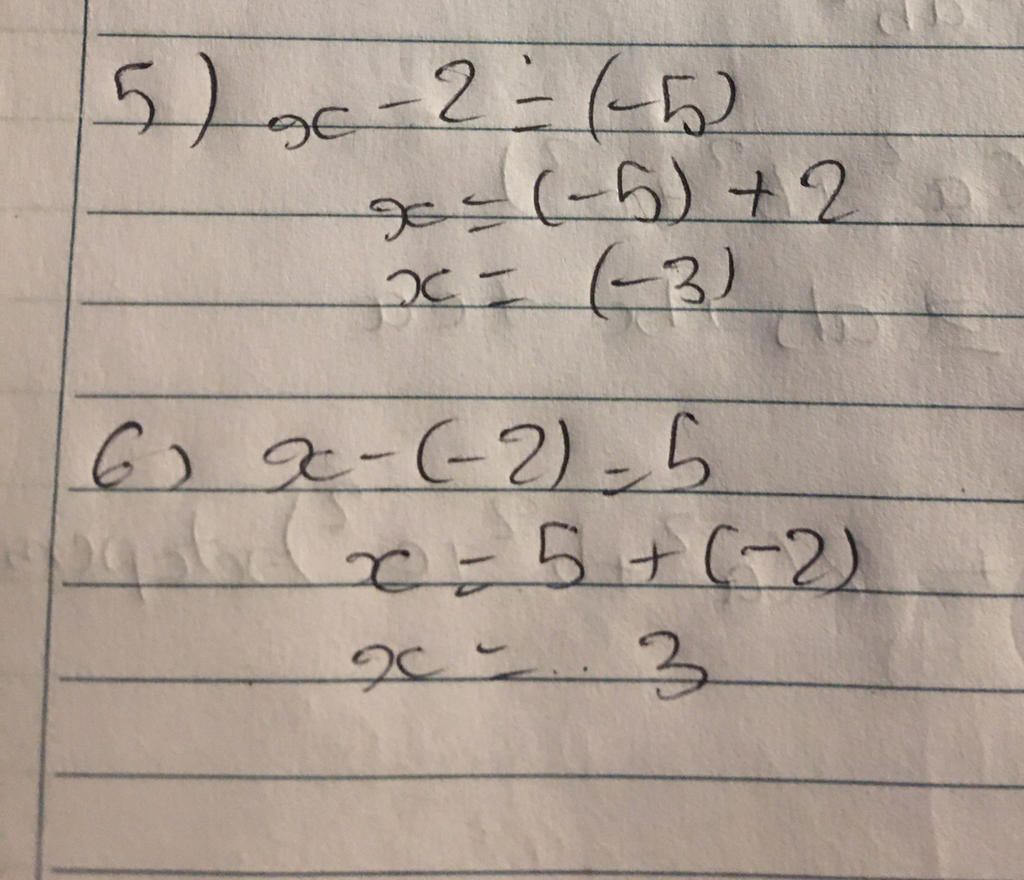 5) x - 2 = (-5)
x = (-5) + 2
x = (-3)
6) x - (-2) = 5
x = 5 + (-2)
x = 3